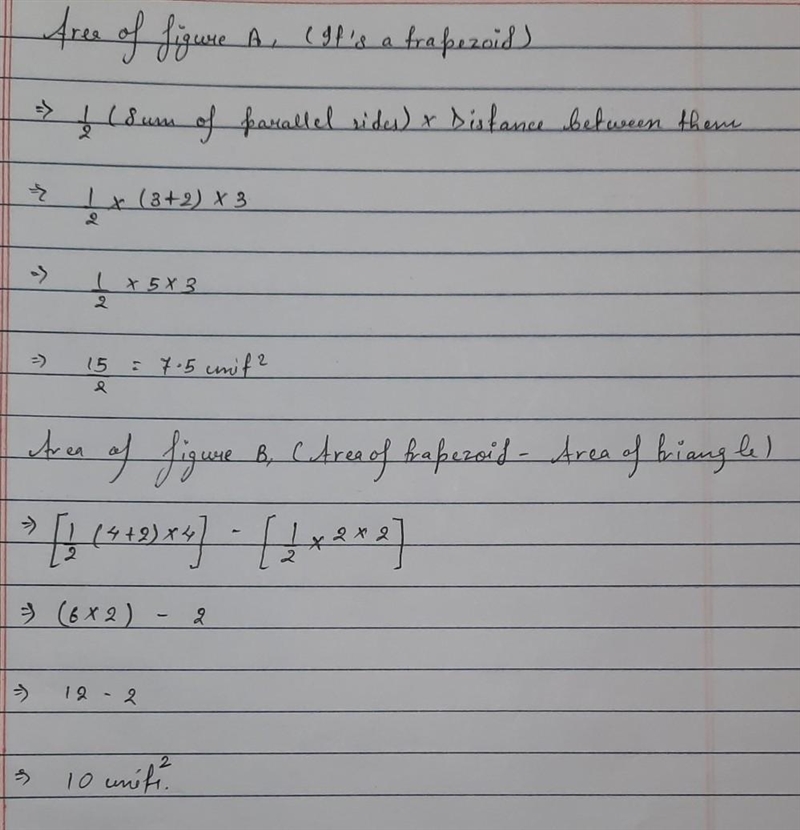 Area of figure A, (It's a trapezoid)
⇒ 1/2 (Sum of parallel sides) × Distance between them
⇒ 1/2 × (3+2) × 3
⇒ 1/2 × 5 × 3
⇒ 15/2 = 7.5 unit²
Area of figure B, (Area of trapezoid - Area of triangle)
⇒ [1/2 (4+2) × 4] - [1/2 × 2 × 2]
⇒ (6 × 2) - 2
⇒ 12 - 2
⇒ 10 units.²